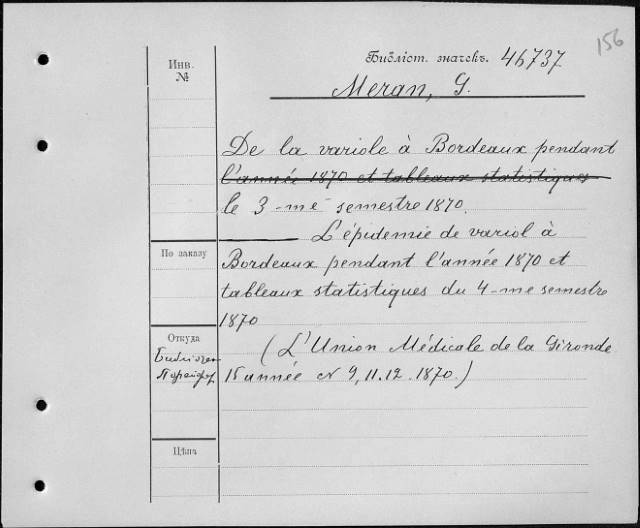 156
Инв.
№
Библіот. значекъ. 46737
Meran, G.
De la variole à Bordeaux pendant
l'année 1870 et tableaux statistiques
le 3-me semestre 1870.
L'épidemie de variol à
По заказу
Bordeaux pendant l'année 1870 et
tableaux statistiques du 4-me semestre
1870
Откуда
(L'Union Médicale de la Gironde
15 année N 9, 11. 12. 1870.)
Цѣна